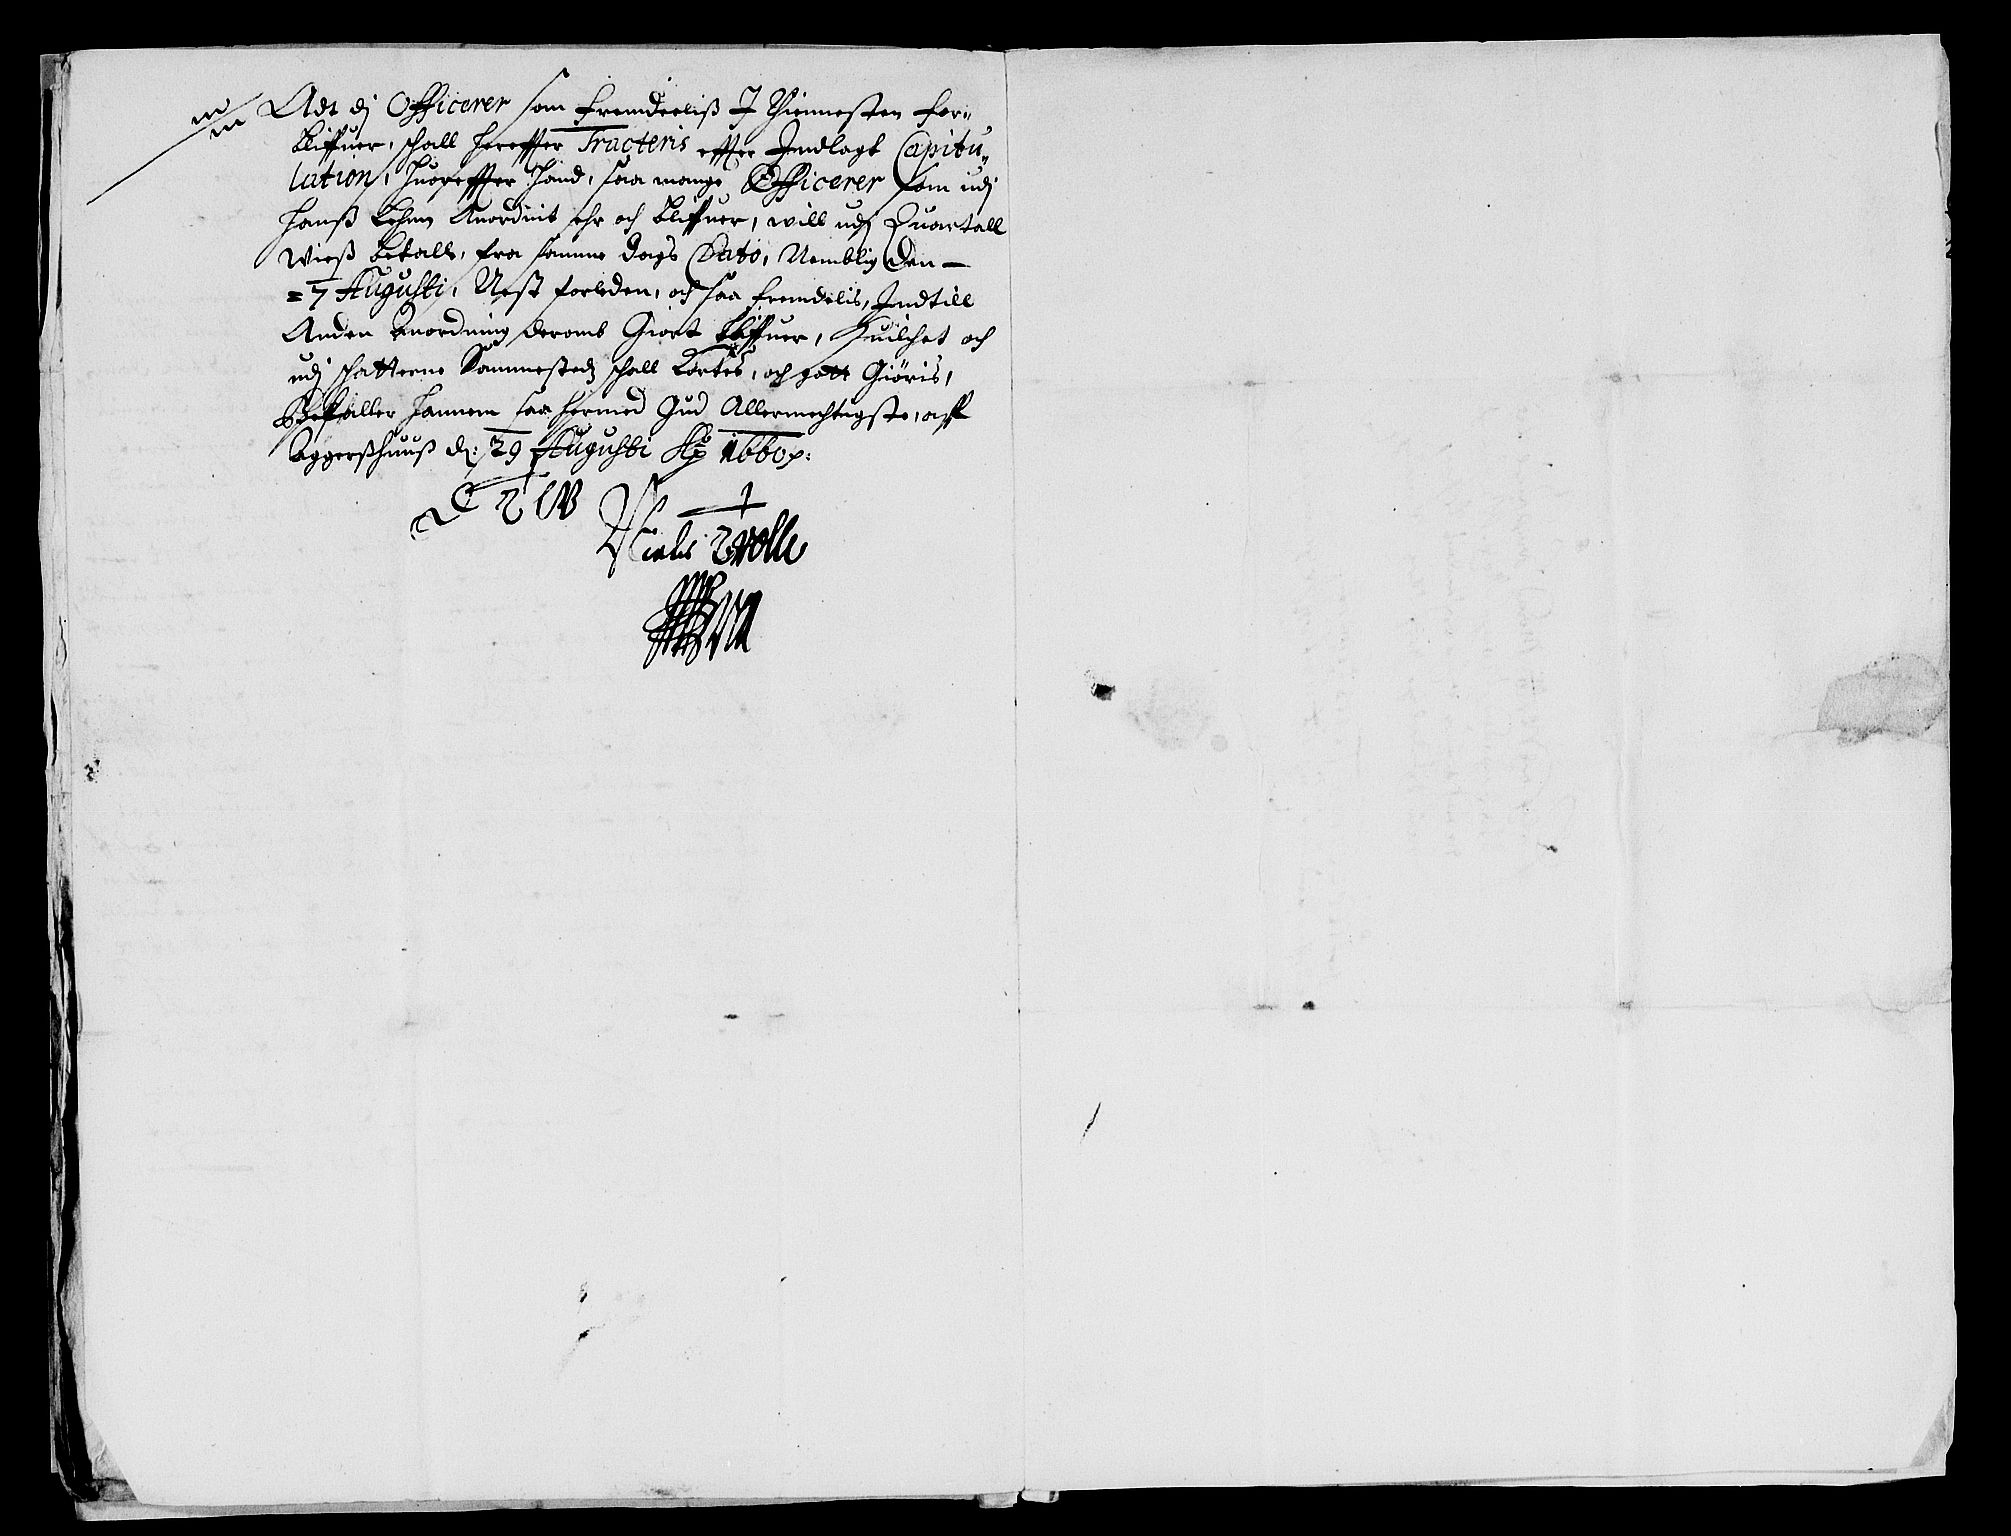 Adt dj Officerer som fremdeeliß J Thiennesten for„
bliffuer, schall hereffter Tracteris effter Jndlagt Capitu„
lation, huoreffter hand, saa mange Officerer som udj
hanß Lehnn Anordnit ehr och bliffuer, will udj Quartall
wieß betalle, fra samme dags Dato, Nemblig den —
= 7 Augusti, Nest forleden, och saa fremdelis, Jndtill
Anden Anordning deromb Giort bliffuer, Huilchet och
udj schatterne Sammesteds schall kortes, och gott Giöris,
Befaller hannem saa hermed Gud Allermechtigste, aff
Aggerßhuuß d: 29 Augusti Ao 1660 p:
E T S W
Niels Trolle